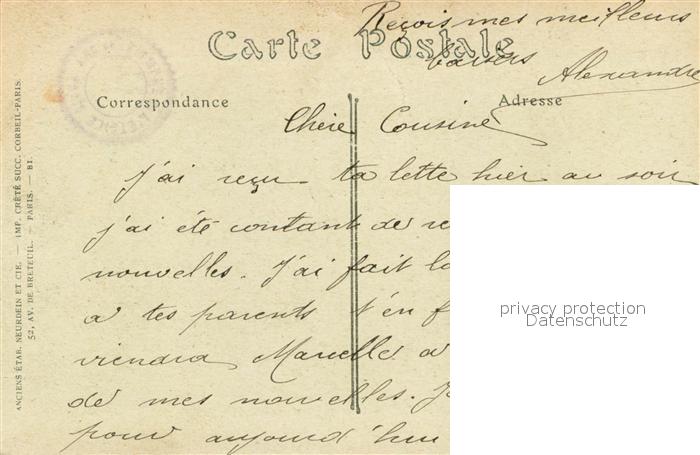 Reçois mes meilleurs
baisers Alexandre
Carte Postale
Correspondance
Adresse
Chère Cousine
J'ai reçu ta lette hier au soir
j'ai été contant de
nouvelles. J'ai fait
a tes parents t'en
viendra Marcelle a
de mes nouvelles.
pour aujourd'hui
privacy protection
Datenschutz
ANCIENS ÉTAB. NEURDEIN ET CIE. — IMP. CRÉTÉ SUCC. CORBEIL-PARIS.
52, AV. DE BRETEUIL. — PARIS. — BI.